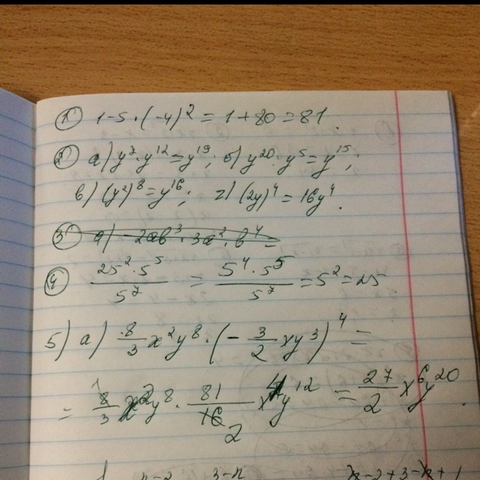 1) 1-5·(-4)² = 1+80 = 81.
2) а) y⁷·y¹² = y¹⁹; б) y²⁰:y⁵ = y¹⁵;
в) (y²)⁸ = y¹⁶; г) (2y)⁴ = 16y⁴.
3) а) -2ab³·3a²·b⁴ =
4) 25²·5⁵/5⁷ = 5⁴·5⁵/5⁷ = 5² = 25
5) а) 8/3 x²y⁸·(-3/2 xy³)⁴ =
= 8/3 x²y⁸·81/16 x⁴y¹² = 27/2 x⁶y²⁰.